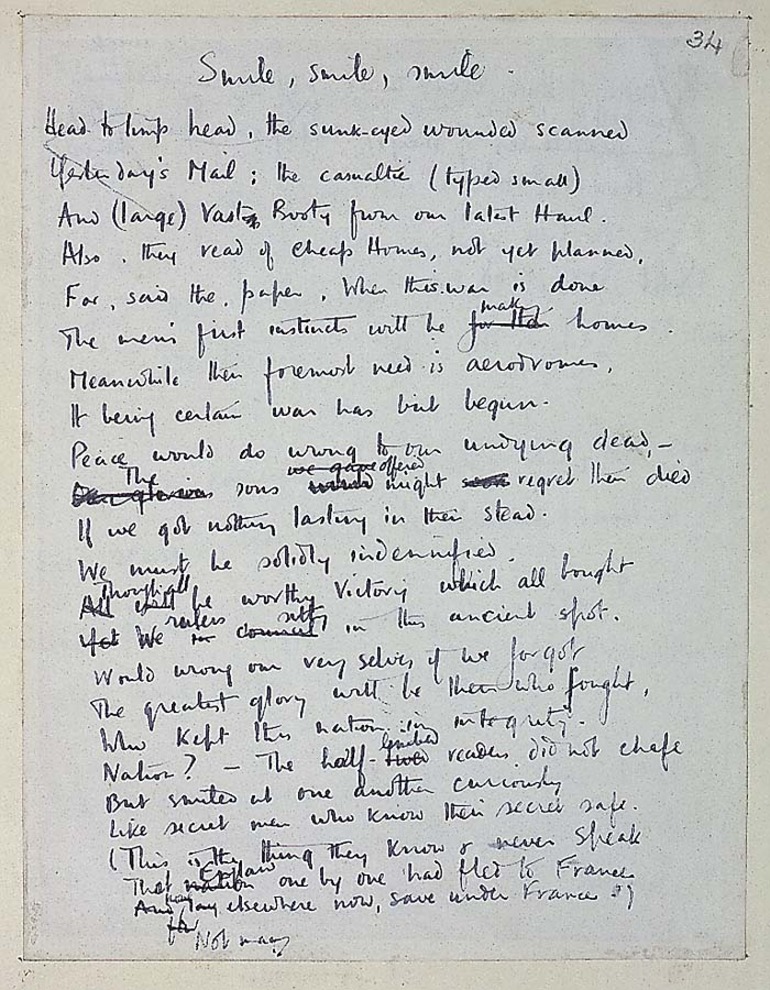 34
Smile, smile, smile.
Head to limp head, the sunk-eyed wounded scanned
Yesterday's Mail; the casualtie (typed small)
And (large) Vast Booty from our latest Haul.
Also, they read of Cheap Homes, not yet planned,
For, said the paper, When this war is done
make
The men's first instincts will be for their homes.
Meanwhile their foremost need is aerodromes,
It being certain war has but begun.
Peace would do wrong to our undying dead,—
The we gave offered
Our glorious sons might regret they died
If we got nothing lasting in their stead.
We must be solidly indemnified.
though all
All will be worthy Victory which all bought
rulers sitting
Yet We in in this ancient spot.
Would wrong our very selves if we forgot
The greatest glory will be theirs who fought,
Who kept this nation in integrity.
limbed
Nation? — The half- readers did not chafe
But smiled at one another curiously
Like secret men who know their secret safe.
(This is the thing they know & never speak
England
That nation one by one had fled to France
And elsewhere now, save under France.)
Not many